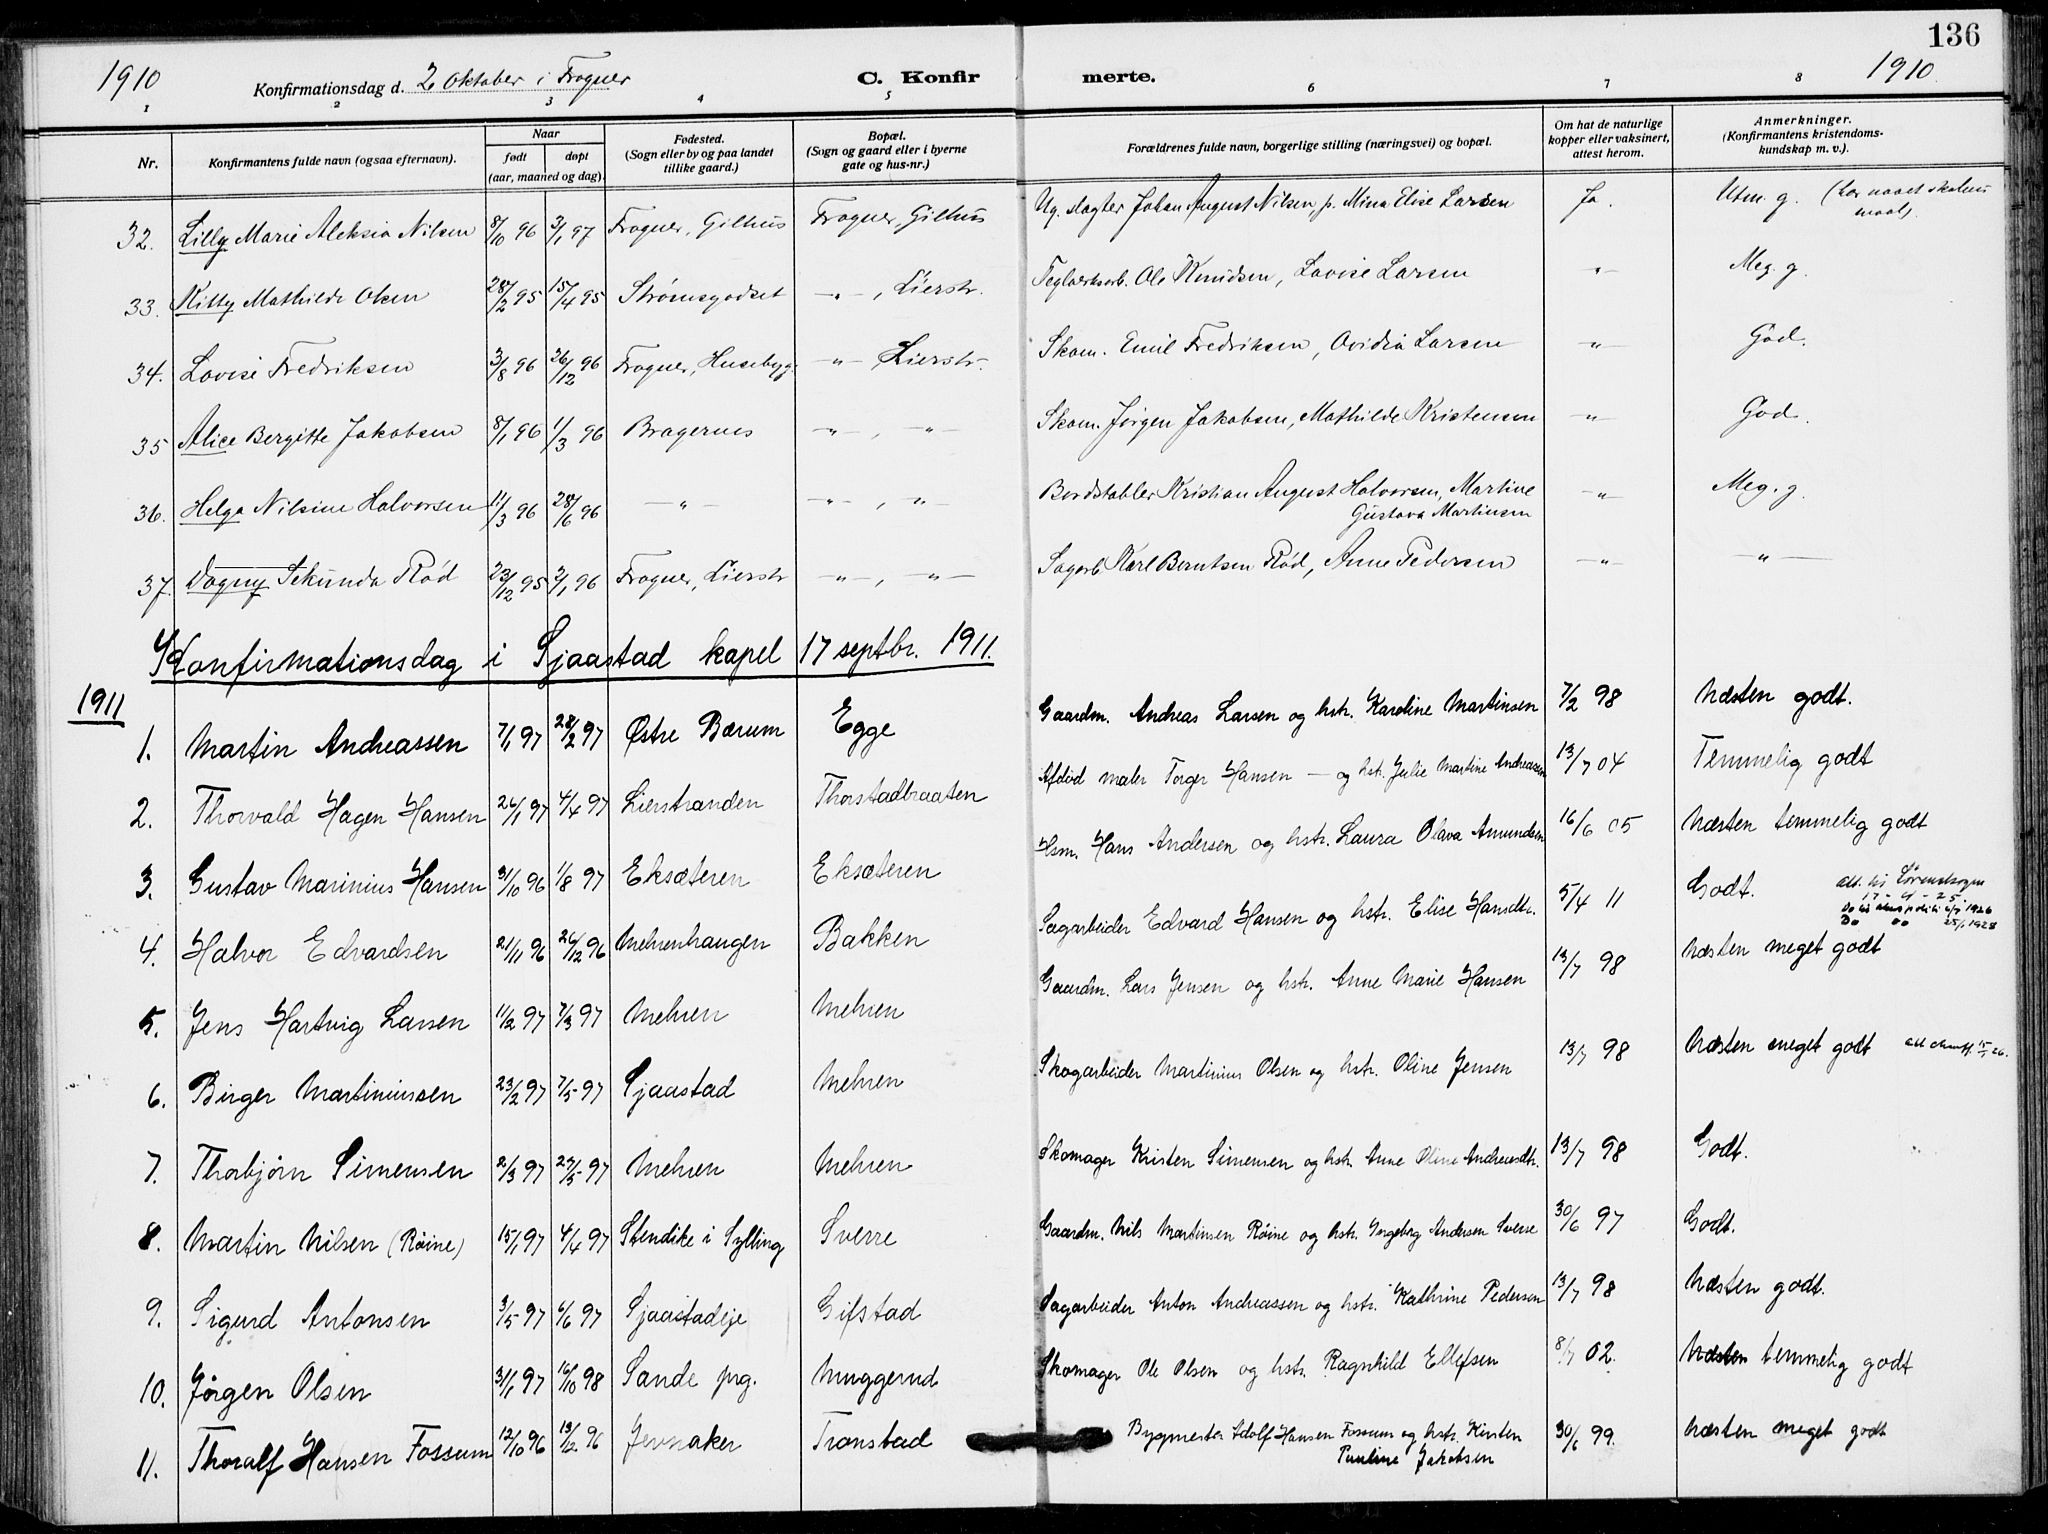 136
1910 Konfirmationsdag d. 2 Oktober i Frogner C. Konfirmerte. 1910.
1 2 3 4 5 6 7 8
Nr. Konfirmantens fulde navn (ogsaa efternavn). Naar født døpt (aar, maaned og dag). Fødested. (Sogn eller by og paa landet tillike gaard.) Bopæl. (Sogn og gaard eller i byerne gate og hus-nr.) Forældrenes fulde navn, borgerlige stilling (næringsvei) og bopæl. Om hat de naturlige kopper eller vaksinert, attest herom. Anmerkninger. (Konfirmantens kristendomskundskap m. v.).
32. Lilly Marie Aleksia Nilsen 8/10 96 3/1 97 Frogner, Gilhus Frogner, Gilhus Ug. slagter Johan August Nilsen, p. Mina Elise Larsen Ja. Utm. g. (Lov naaet skolens maal).
33. Kitty Mathilde Olsen 28/2 95 15/4 95 Strømsgodset —"—, Lierstr. Teglverksarb. Ole Knudsen, Lovise Larsen —"— Meg. g.
34. Lovise Fredriksen 3/8 96 26/12 96 Frogner, Husebyg. —"— Lierstr. Skom. Emil Fredriksen, Ovidia Larsen —"— God.
35 Alice Bergitte Jakobsen 8/1 96 1/3 96 Bragernes —"—, —"— Skom. Jørgen Jakobsen, Mathilde Kristensen —"— God.
36. Helga Nilsine Halvorsen 11/3 96 28/6 96 —"— —"—, —"— Bordstabler Kristian August Halvorsen, Martine Gustava Martinsen —"— Meg. g.
37. Dagny Sekunda Rød 23/12 95 2/1 96 Frogner, Lierstr —"—, —"— Sagarb. Karl Berntsen Rød, Anne Pedersen —"— —"—
Konfirmationsdag i Sjaastad kapel 17 septbr. 1911.
1911
1. Martin Andreassen 7/1 97 28/2 97 Østre Bærum Egge Gaardm. Andreas Larsen og hstr. Karoline Martinsen 7/2 98 Næsten godt.
2. Thorvald Hagen Hansen 26/1 97 4/4 97 Lierstranden Thorstadbraaten Afdød maler Torger Hansen — og hst. Julie Martine Andreasen 13/7 04 Temmelig godt
3. Gustav Marinius Hansen 31/10 96 1/8 97 Eksæteren Eksæteren Hsm. Hans Andersen og hstr. Laura Olava Amundsen 16/6 05 Næsten temmelig godt
4. Halvor Edvardsen 21/11 96 26/12 96 Mehrenhaugen Bakken Sagarbeider Edvard Hansen og hstr. Elise Hansdtr. 5/4 11 Godt. att. til Lørenskogen 17-4-25
5. Jens Hartvig Larsen 11/2 97 7/3 97 Mehren Mehren Gaardm. Lars Jensen og hstr. Anne Marie Hansen 13/7 98 Næsten meget godt
6. Birger Martiniussen 23/2 97 7/5 97 Sjaastad Mehren Skogarbeider Martinius Olsen og hstr. Oline Jensen 13/7 98 Næsten meget godt
7. Thorbjørn Simensen 2/3 97 27/5 97 Mehren Mehren Skomager Kristen Simensen og hstr. Anne Oline Andreasdtr. 13/7 98 Godt.
8. Martin Nilsen (Røine) 15/1 97 4/4 97 Stendike i Sylling Sverre Gaardm. Nils Martinsen Røine og hstr. Ingeborg Andersen Sverre 30/6 97 Godt.
9. Sigurd Antonsen 3/5 97 6/6 97 Sjaastadeje Gifstad Sagarbeider Anton Andreassen og hstr. Kathrine Pedersen 13/7 98 Næsten godt.
10. Jørgen Olsen 31/1 97 16/10 98 Sande prg. Muggerud Skomager Ole Olsen og hstr. Ragnhild Ellefsen 8/7 02. Næsten temmelig godt
11. Thoralf Hansen Fossum 12/10 96 13/12 96 Jevnaker Tronstad Bygmester Adolf Hansen Fossum og hstr. Kirsten Pauline Jakobsen 30/6 99. Næsten meget godt